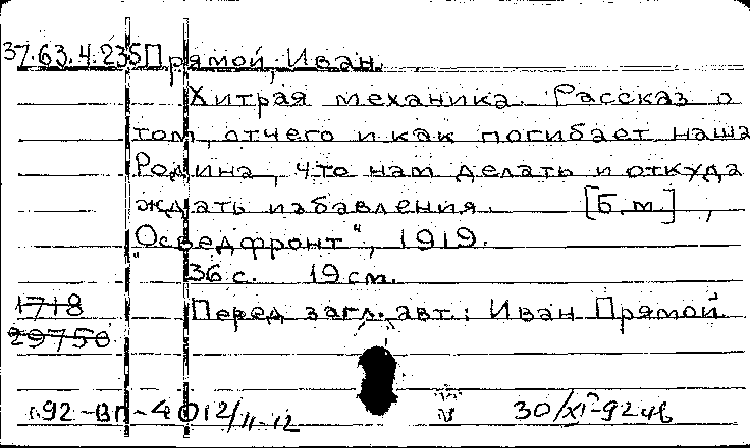 37.63.4.235 Прямой, Иван.
Хитрая механика. Рассказ о
том, отчего и как погибает наша
Родина, что нам делать и откуда
ждать избавления. [Б.м.],
"Осведфронт", 1919.
36 с. 19 см.
1718 Перед загл. авт.: Иван Прямой.
29750
92-ВП-4012/11-12 30/XI-92